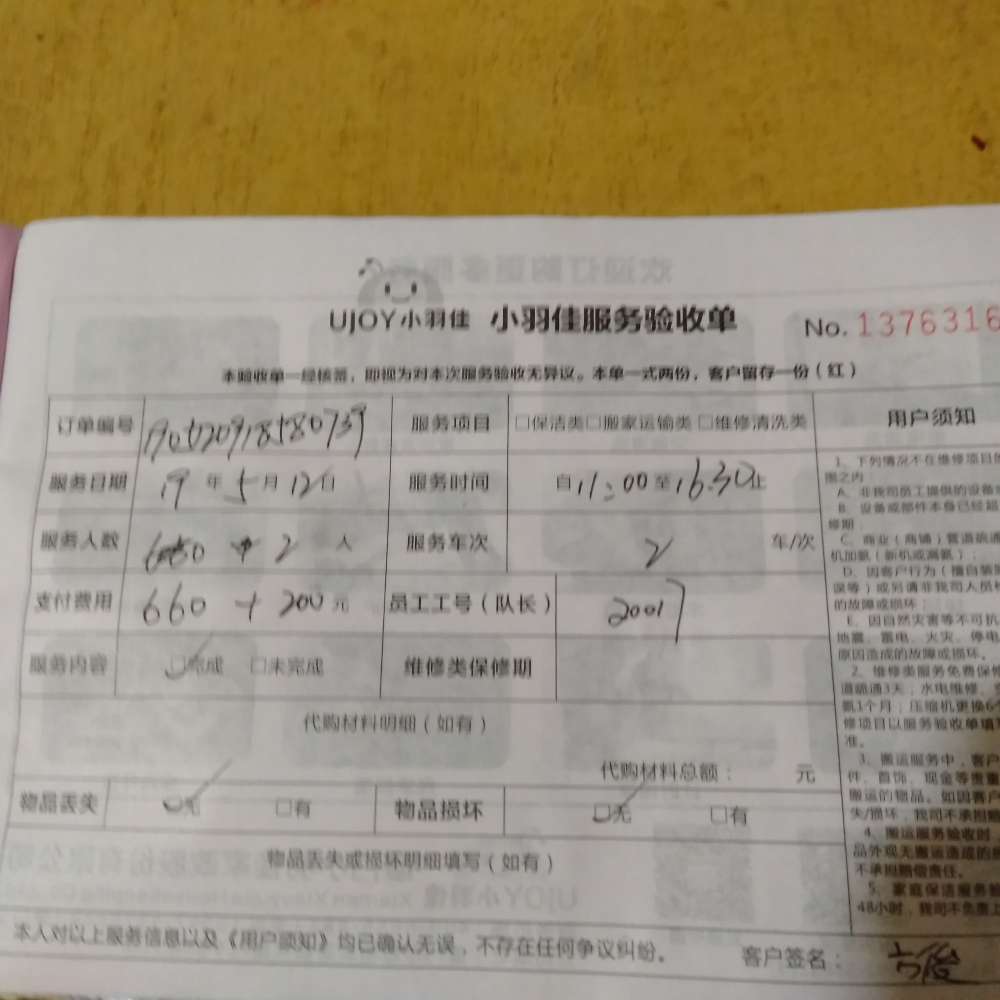 UJOY小羽佳 小羽佳服务验收单 No. 1376316
本验收单一经核签，即视为对本次服务验收无异议。本单一式两份，客户留存一份（红）
订单编号 服务项目 □保洁类□搬家运输类 □维修清洗类
服务日期 19 年 5 月 12 日 服务时间 自 11:00 至 16:30 止
服务人数 2 人 服务车次 2 车/次
支付费用 660 + 200 元 员工工号（队长） 20017
服务内容 □完成 □未完成 维修类保修期
代购材料明细（如有）
代购材料总额： 元
物品丢失 □无 □有 物品损坏 □无 □有
物品丢失或损坏明细填写（如有）
本人对以上服务信息以及《用户须知》均已确认无误，不存在任何争议纠纷。
客户签名：
用户须知
1、下列情况不在维修项目的
围之内
A、非我司员工提供的设备或
B、设备或部件本身已经超
修期
C、商业（商铺）管道疏通
机加氨（新机或离氨）；
D、因客户行为（擅自装
误等）或另请非我司人员
的故障或损坏；
E、因自然灾害等不可抗
地震、雷电、火灾、停电
原因造成的故障或损坏。
2、维修类服务免费保修
道疏通3天；水电维修、
氨1个月；压缩机更换6
修项目以服务验收单填
准。
3、搬运服务中，客户
件、首饰、现金等贵重
搬运的物品。如因客户
失/损坏，我司不承担赔
4、搬运服务验收时，
品外观无搬运造成的
不承担赔偿责任。
5、家庭保洁服务验
48小时，我司不负责上